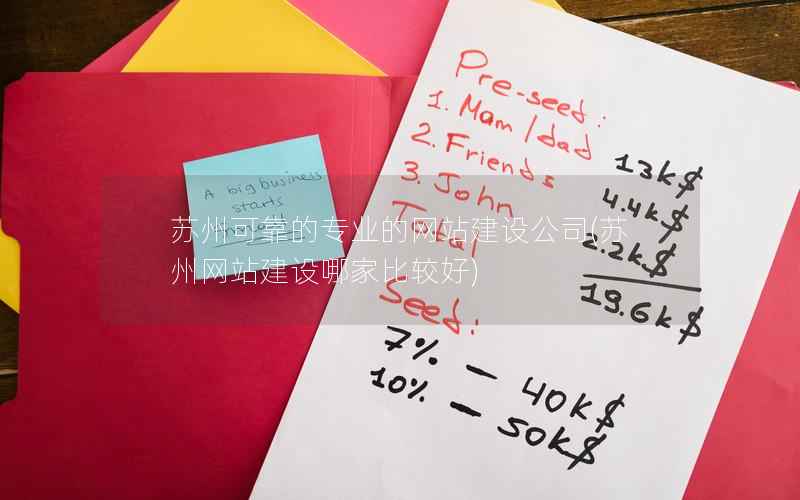 A big business
starts
small
苏州可靠的专业的网站建设公司(苏
州网站建设哪家比较好)
Pre-seed:
1. Mam/dad 13k$
2. Friends 4.4k$
3. John 2.2k$
Total 19.6k$
Seed:
7% — 40k$
10% — 50k$